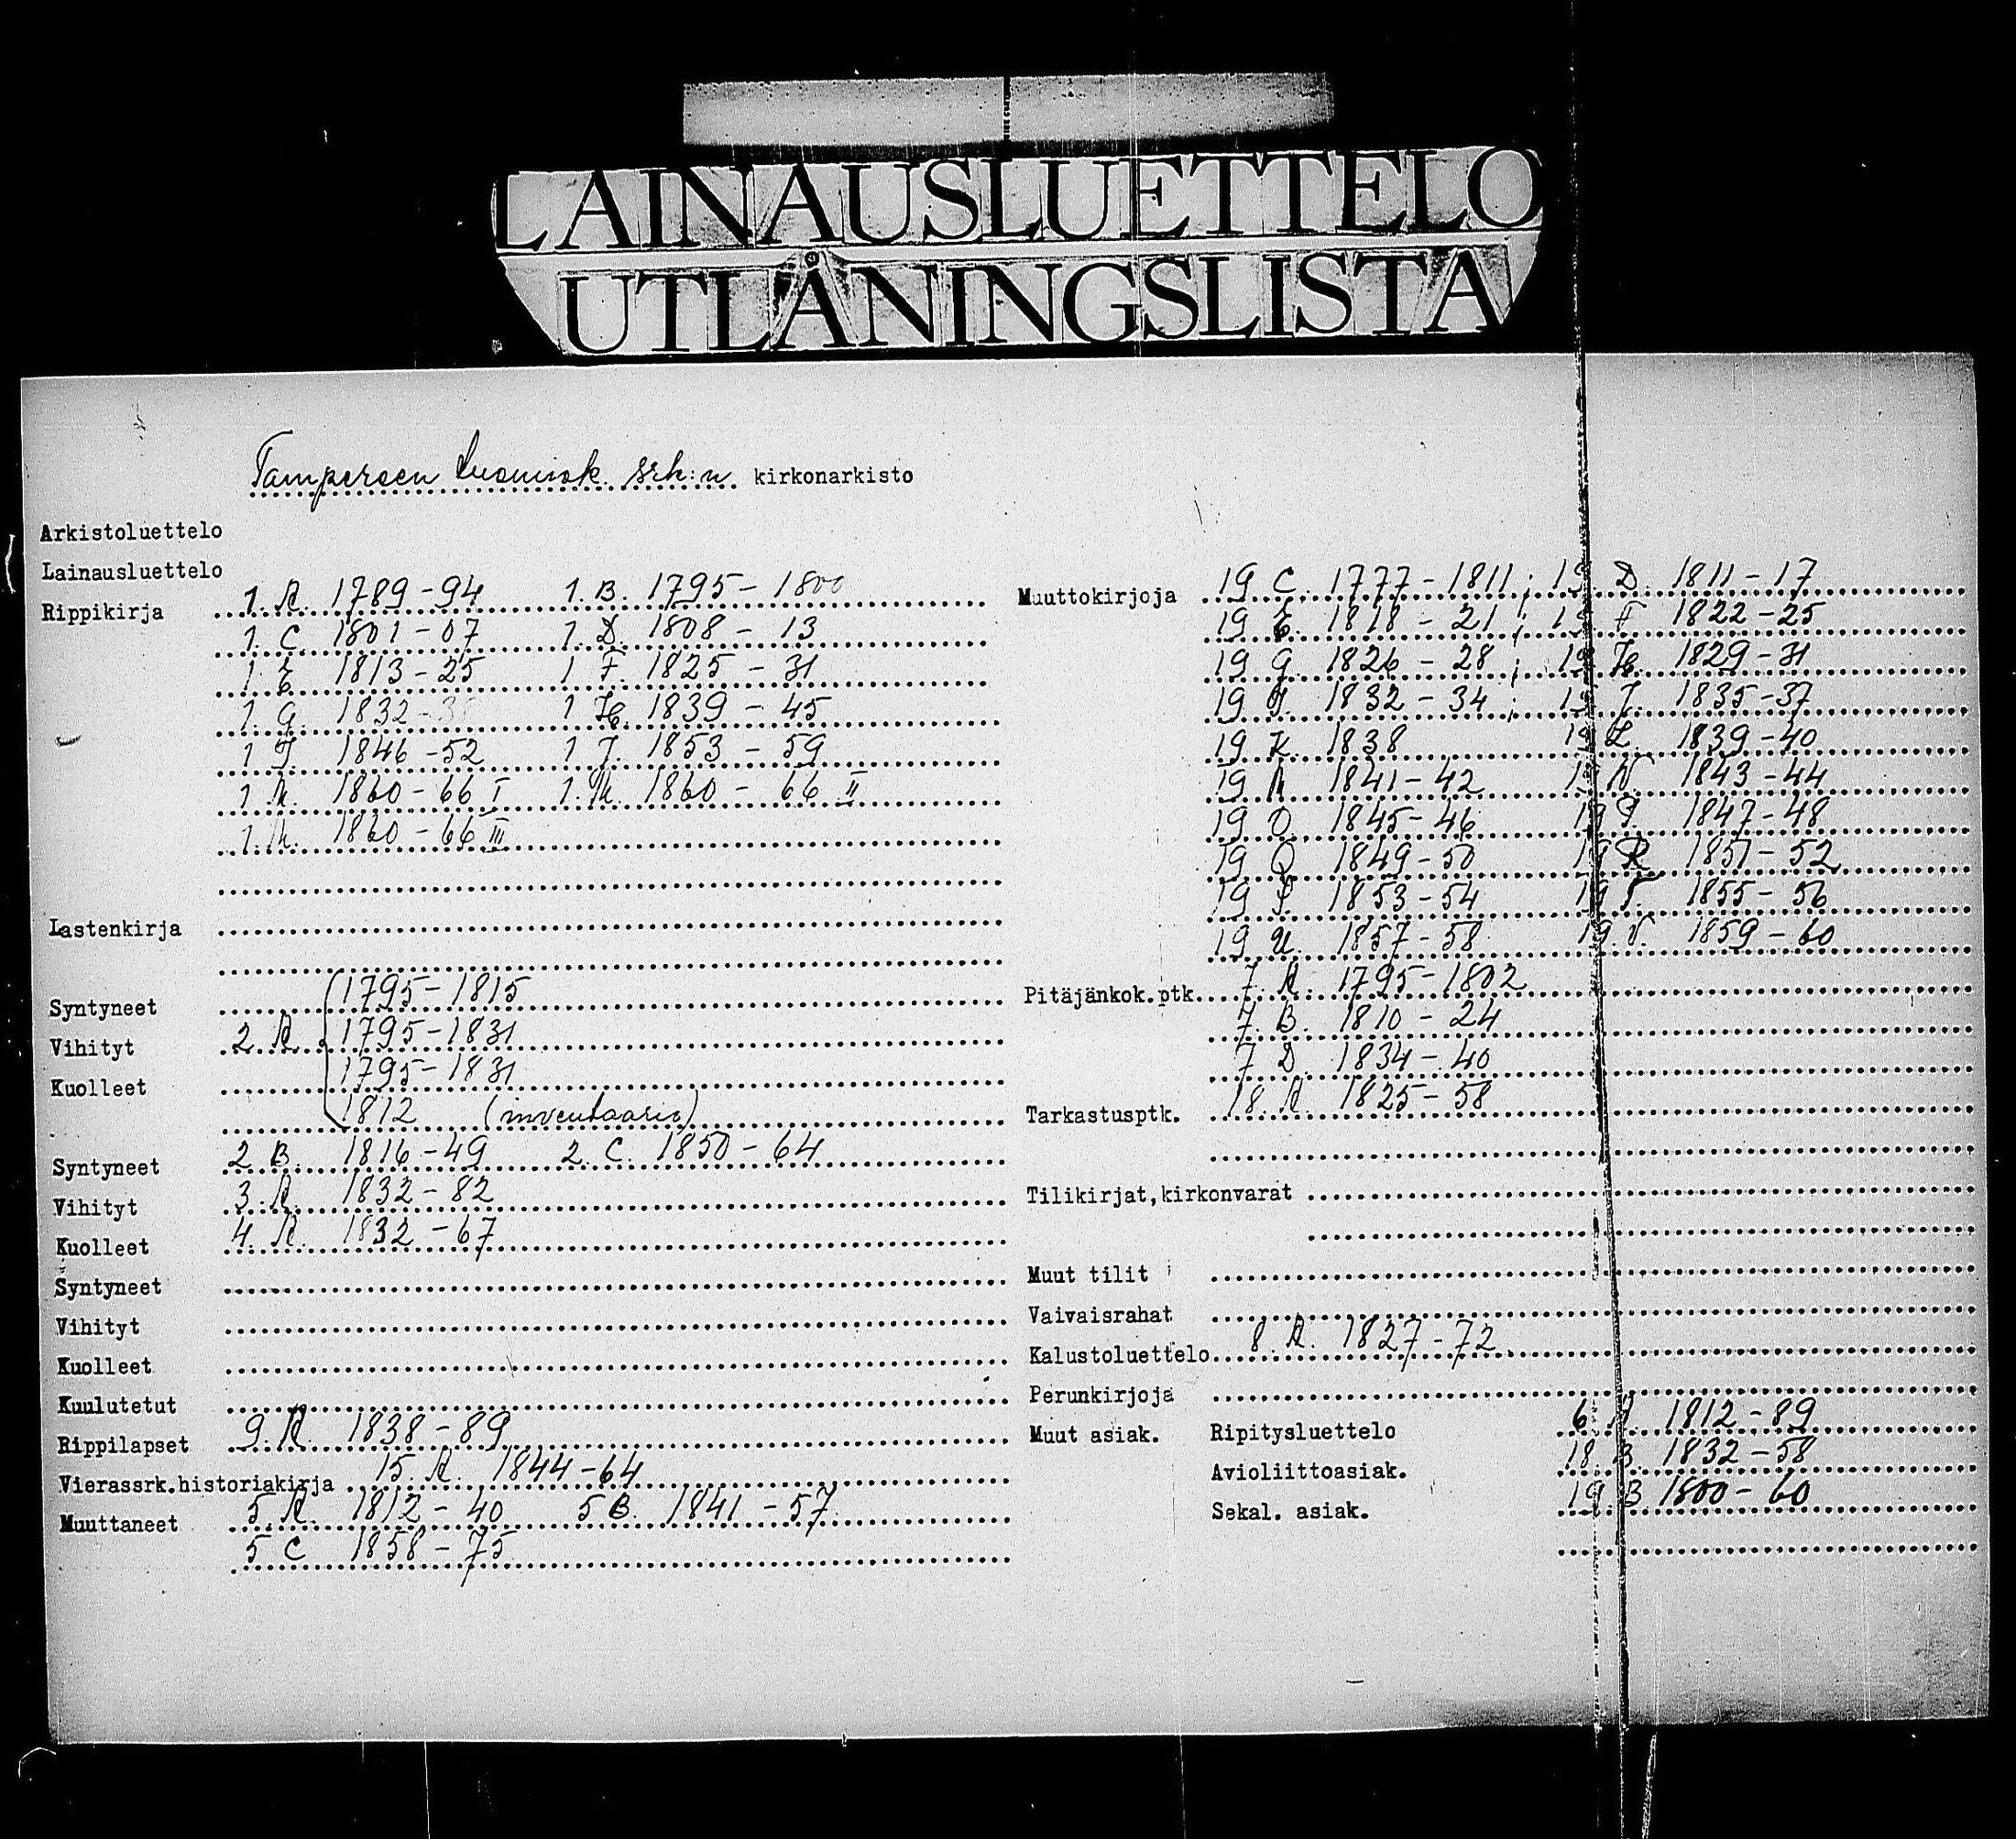 LAINAUSLUETTELO
UTLÅNINGSLISTA
Tampereen tuomiok. srk:n kirkonarkisto
Arkistoluettelo
Lainausluettelo
Rippikirja 1. A. 1789-94 1. B. 1795-1800
1. C. 1801-07 1. D. 1808-13
1 E 1813-25 1 F. 1825-31
1. G. 1832-38 1 H. 1839-45
1 I. 1846-52 1 J. 1853-59
1. K. 1860-66 I 1. K. 1860-66 II
1. K. 1860-66 III
Lastenkirja
Syntyneet 1795-1815
Vihityt 2 A 1795-1831
Kuolleet 1795-1831
1812 (inventaario)
Syntyneet 2 B. 1816-49 2. C. 1850-64
Vihityt 3. A. 1832-82
Kuolleet 4. A. 1832-67
Syntyneet
Vihityt
Kuolleet
Kuulutetut
Rippilapset 9. A. 1838-89
Vierassrk.historiakirja 15. A. 1844-64
Muuttaneet 5. A. 1812-40 5 B. 1841-57
5 C 1858-75
Muuttokirjoja 19 C. 1777-1811; 19 D. 1811-17
19 E. 1818-21; 19 F 1822-25
19 G. 1826-28; 19 H. 1829-31
19 I. 1832-34; 19 J. 1835-37
19 K. 1838 19 L. 1839-40
19 M 1841-42 19 N 1843-44
19 O. 1845-46 19 P. 1847-48
19 Q 1849-50 19 R 1851-52
19 S. 1853-54 19 T. 1855-56
19 U. 1857-58 19. V. 1859-60
Pitäjänkok.ptk. 7. A. 1795-1802
7. B. 1810-24
7 D 1834-40
Tarkastusptk. 18. A. 1825-58
Tilikirjat,kirkonvarat
Muut tilit
Vaivaisrahat
Kalustoluettelo 8. A. 1827-72
Perunkirjoja
Muut asiak. Ripitysluettelo 6 A. 1812-89
Avioliittoasiak. 18. B. 1832-58
Sekal. asiak. 19. B 1800-60